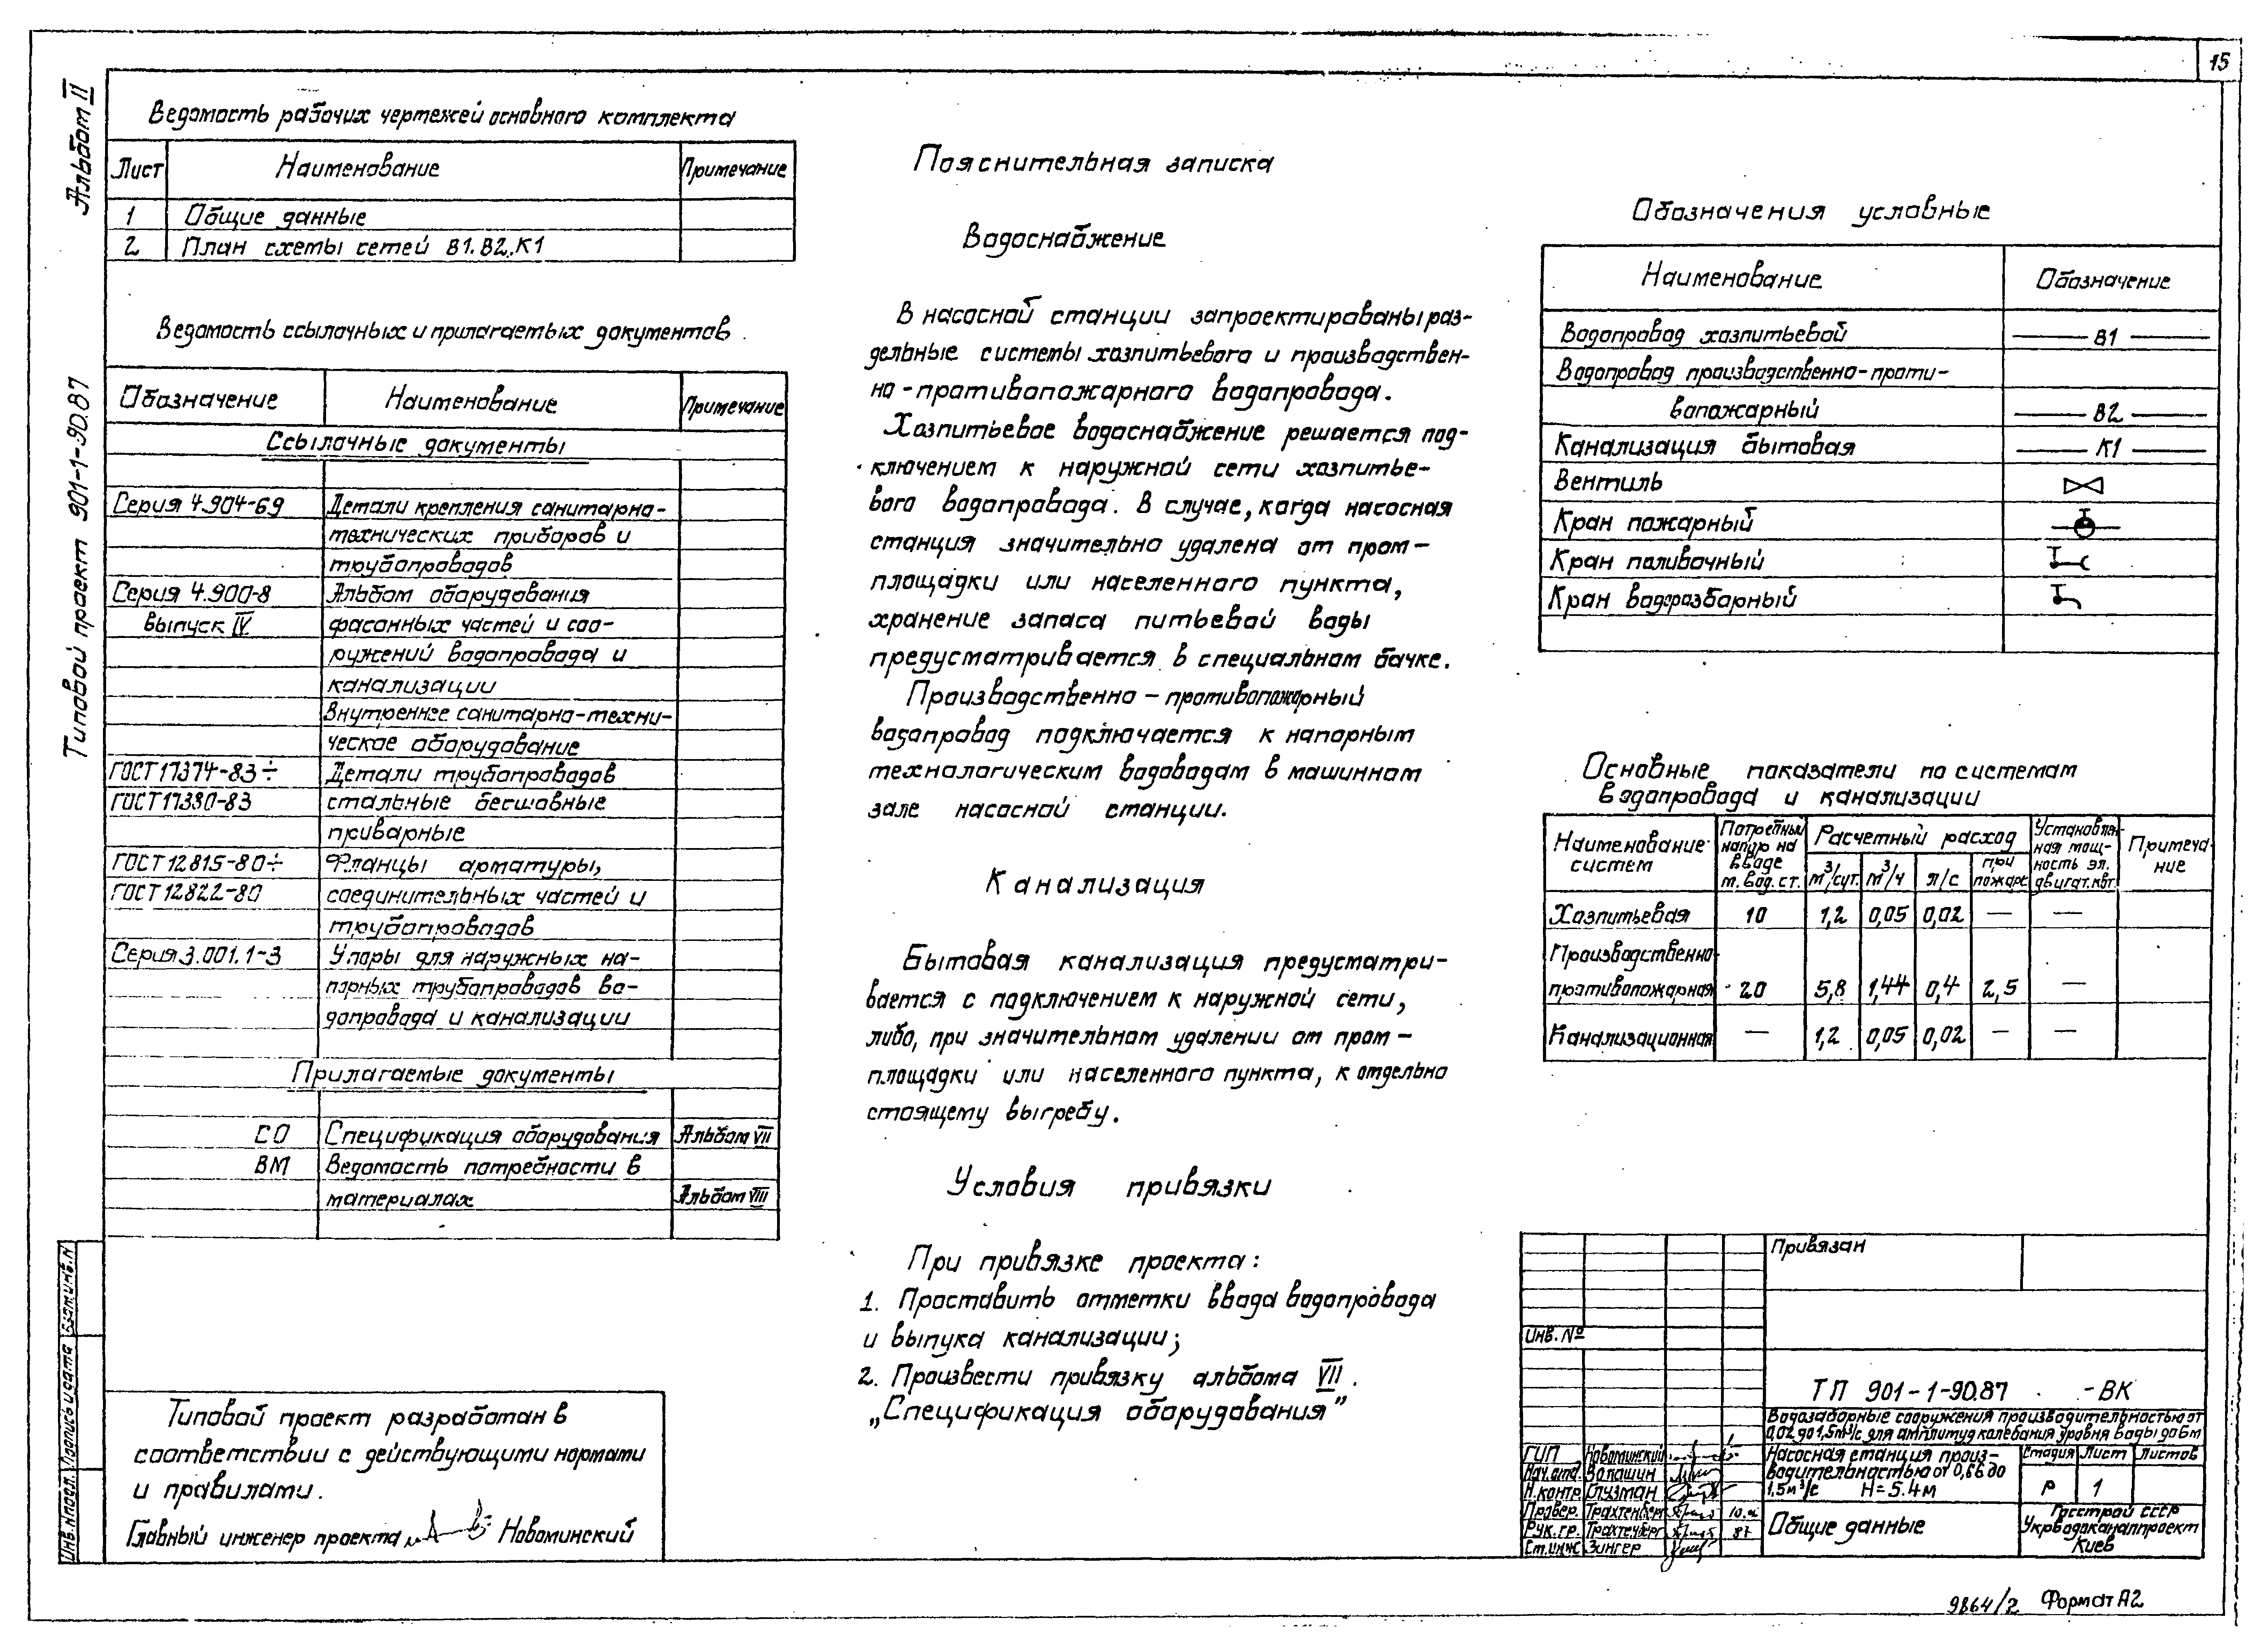 15
Альбом II
Типовой проект 901-1-90.87
Ведомость рабочих чертежей основного комплекта
Лист Наименование Примечание
1 Общие данные
2 План схемы сетей В1.В2.К1
Ведомость ссылочных и прилагаемых документов
Обозначение Наименование Примечание
Ссылочные документы
Серия 4.904-69 Детали крепления санитарно-
технических приборов и
трубопроводов
Серия 4.900-8 Альбом оборудования
выпуск IV фасонных частей и соо-
ружений водопровода и
канализации
Внутреннее санитарно-техни-
ческое оборудование
ГОСТ 17374-83÷ Детали трубопроводов
ГОСТ 17380-83 стальные бесшовные
приварные
ГОСТ 12815-80÷ Фланцы арматуры,
ГОСТ 12822-80 соединительных частей и
трубопроводов
Серия 3.001.1-3 Упоры для наружных на-
порных трубопроводов во-
допровода и канализации
Прилагаемые документы
СО Спецификация оборудования Альбом VII
ВМ Ведомость потребности в
материалах Альбом VIII
Типовой проект разработан в
соответствии с действующими нормами
и правилами.
Главный инженер проекта Новоминский
Пояснительная записка
Водоснабжение
В насосной станции запроектированы раз-
дельные системы хозпитьевого и производствен-
но-противопожарного водопровода.
Хозпитьевое водоснабжение решается под-
ключением к наружной сети хозпитье-
вого водопровода. В случае, когда насосная
станция значительно удалена от пром-
площадки или населенного пункта,
хранение запаса питьевой воды
предусматривается в специальном бачке.
Производственно-противопожарный
водопровод подключается к напорным
технологическим водоводам в машинном
зале насосной станции.
Канализация
Бытовая канализация предусматри-
вается с подключением к наружной сети,
либо, при значительном удалении от пром-
площадки или населенного пункта, к отдельно
стоящему выгребу.
Условия привязки
При привязке проекта:
1. Проставить отметки ввода водопровода
и выпука канализации;
2. Произвести привязку альбома VII.
„Спецификация оборудования"
Обозначения условные
Наименование Обозначение
Водопровод хозпитьевой В1
Водопровод производственно-проти-
вопожарный В2
Канализация бытовая К1
Вентиль
Кран пожарный
Кран поливочный
Кран водоразборный
Основные показатели по системам
водопровода и канализации
Наименование систем Потребный напор на вводе м. вод. ст. Расчетный расход м³/сут. м³/ч л/с при пожаре Установлен-ная мощ-ность эл. двигат. квт Примеча-ние
Хозпитьевая 10 1,2 0,05 0,02 — —
Производственно-
противопожарная 20 5,8 1,44 0,4 2,5 —
Канализационная — 1,2 0,05 0,02 — —
Привязан
Инв. №
ТП 901-1-90.87 -ВК
Водозаборные сооружения производительностью от
0,02 до 1,5м³/с для амплитуд колебания уровня воды до 6м
ГИП Новоминский
Нач.отд. Волошин
Н.контр. Глузман
Провер. Трахтенберг
Рук.гр. Трахтенберг 87
Ст.инж Зингер
Насосная станция произ-
водительностью от 0,66 до
1,5м³/с Н=5.4м
Стадия Лист Листов
Р 1
Общие данные
Госстрой СССР
Укрводоканалпроект
Киев
Инв.№подл. Подпись и дата Взам.инв.№
9864/2 Формат А2